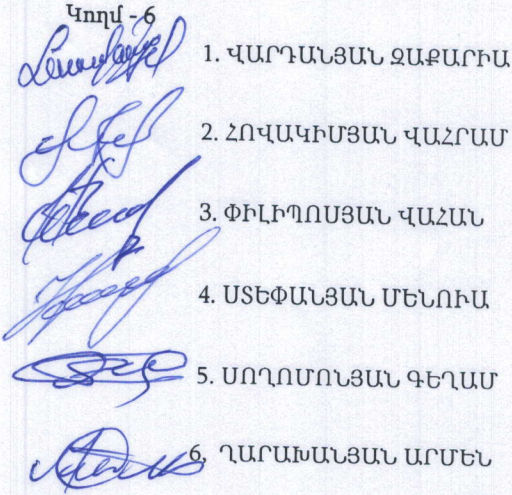 Կողմ - 6
1. ՎԱՐԴԱՆՅԱՆ ԶԱՔԱՐԻԱ
2. ՀՈՎԱԿԻՄՅԱՆ ՎԱՀՐԱՄ
3. ՓԻԼԻՊՈՍՅԱՆ ՎԱՀԱՆ
4. ՍՏԵՓԱՆՅԱՆ ՄԵՆՈՒԱ
5. ՍՈՂՈՄՈՆՅԱՆ ԳԵՂԱՄ
6, ՂԱՐԱԽԱՆՅԱՆ ԱՐՄԵՆ